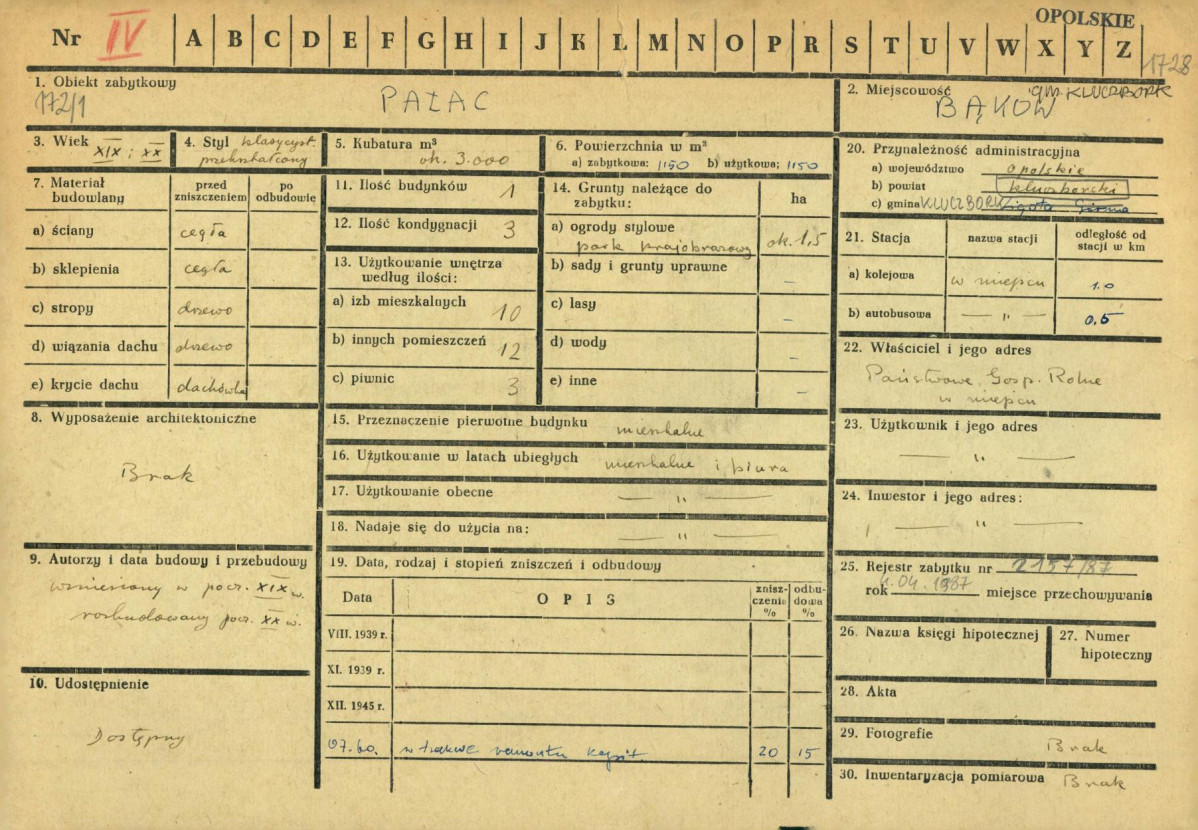 OPOLSKIE
Nr IV A B C D E F G H I J K Ł M N O P R S T U V W X Y Z
1728
1. Obiekt zabytkowy
172/1
PAŁAC
2. Miejscowość gm. KLUCZBORK
BĄKÓW
3. Wiek XIX i XX
4. Styl klasycyst. przekształcony
5. Kubatura m³
ok. 3.000
6. Powierzchnia w m²
a) zabytkowa: 1150 b) użytkowa: 1150
20. Przynależność administracyjna
a) województwo opolskie
b) powiat kluczborski
c) gmina KLUCZBORK Ligota Górna
7. Materiał budowlany
przed zniszczeniem
po odbudowie
a) ściany cegła
b) sklepienia cegła
c) stropy drzewo
d) wiązania dachu drzewo
e) krycie dachu dachówka
11. Ilość budynków 1
12. Ilość kondygnacji 3
13. Użytkowanie wnętrza według ilości:
a) izb mieszkalnych 10
b) innych pomieszczeń 12
c) piwnic 3
14. Grunty należące do zabytku:
ha
a) ogrody stylowe
park krajobrazowy ok. 1,5
b) sady i grunty uprawne –
c) lasy –
d) wody –
e) inne –
21. Stacja
nazwa stacji
odległość od stacji w km
a) kolejowa w miejscu 1.0
b) autobusowa — „ — 0,5
22. Właściciel i jego adres
Państwowe Gosp. Rolne
w miejscu
23. Użytkownik i jego adres
— „ —
24. Inwestor i jego adres:
— „ —
8. Wyposażenie architektoniczne
Brak
15. Przeznaczenie pierwotne budynku mieszkalne
16. Użytkowanie w latach ubiegłych mieszkalne i biura
17. Użytkowanie obecne — „ —
18. Nadaje się do użycia na: — „ —
9. Autorzy i data budowy i przebudowy
wzniesiony w pocz. XIX w.
rozbudowany pocz. XX w.
10. Udostępnienie
Dostępny
19. Data, rodzaj i stopień zniszczeń i odbudowy
Data
OPIS
zniszczenie %
odbudowa %
VIII. 1939 r.
XI. 1939 r.
XII. 1945 r.
07.60. w trakcie remontu kapit 20 15
25. Rejestr zabytku nr 2157/87
rok 4.04.1987 miejsce przechowywania
26. Nazwa księgi hipotecznej
27. Numer hipoteczny
28. Akta
29. Fotografie
Brak
30. Inwentaryzacja pomiarowa Brak